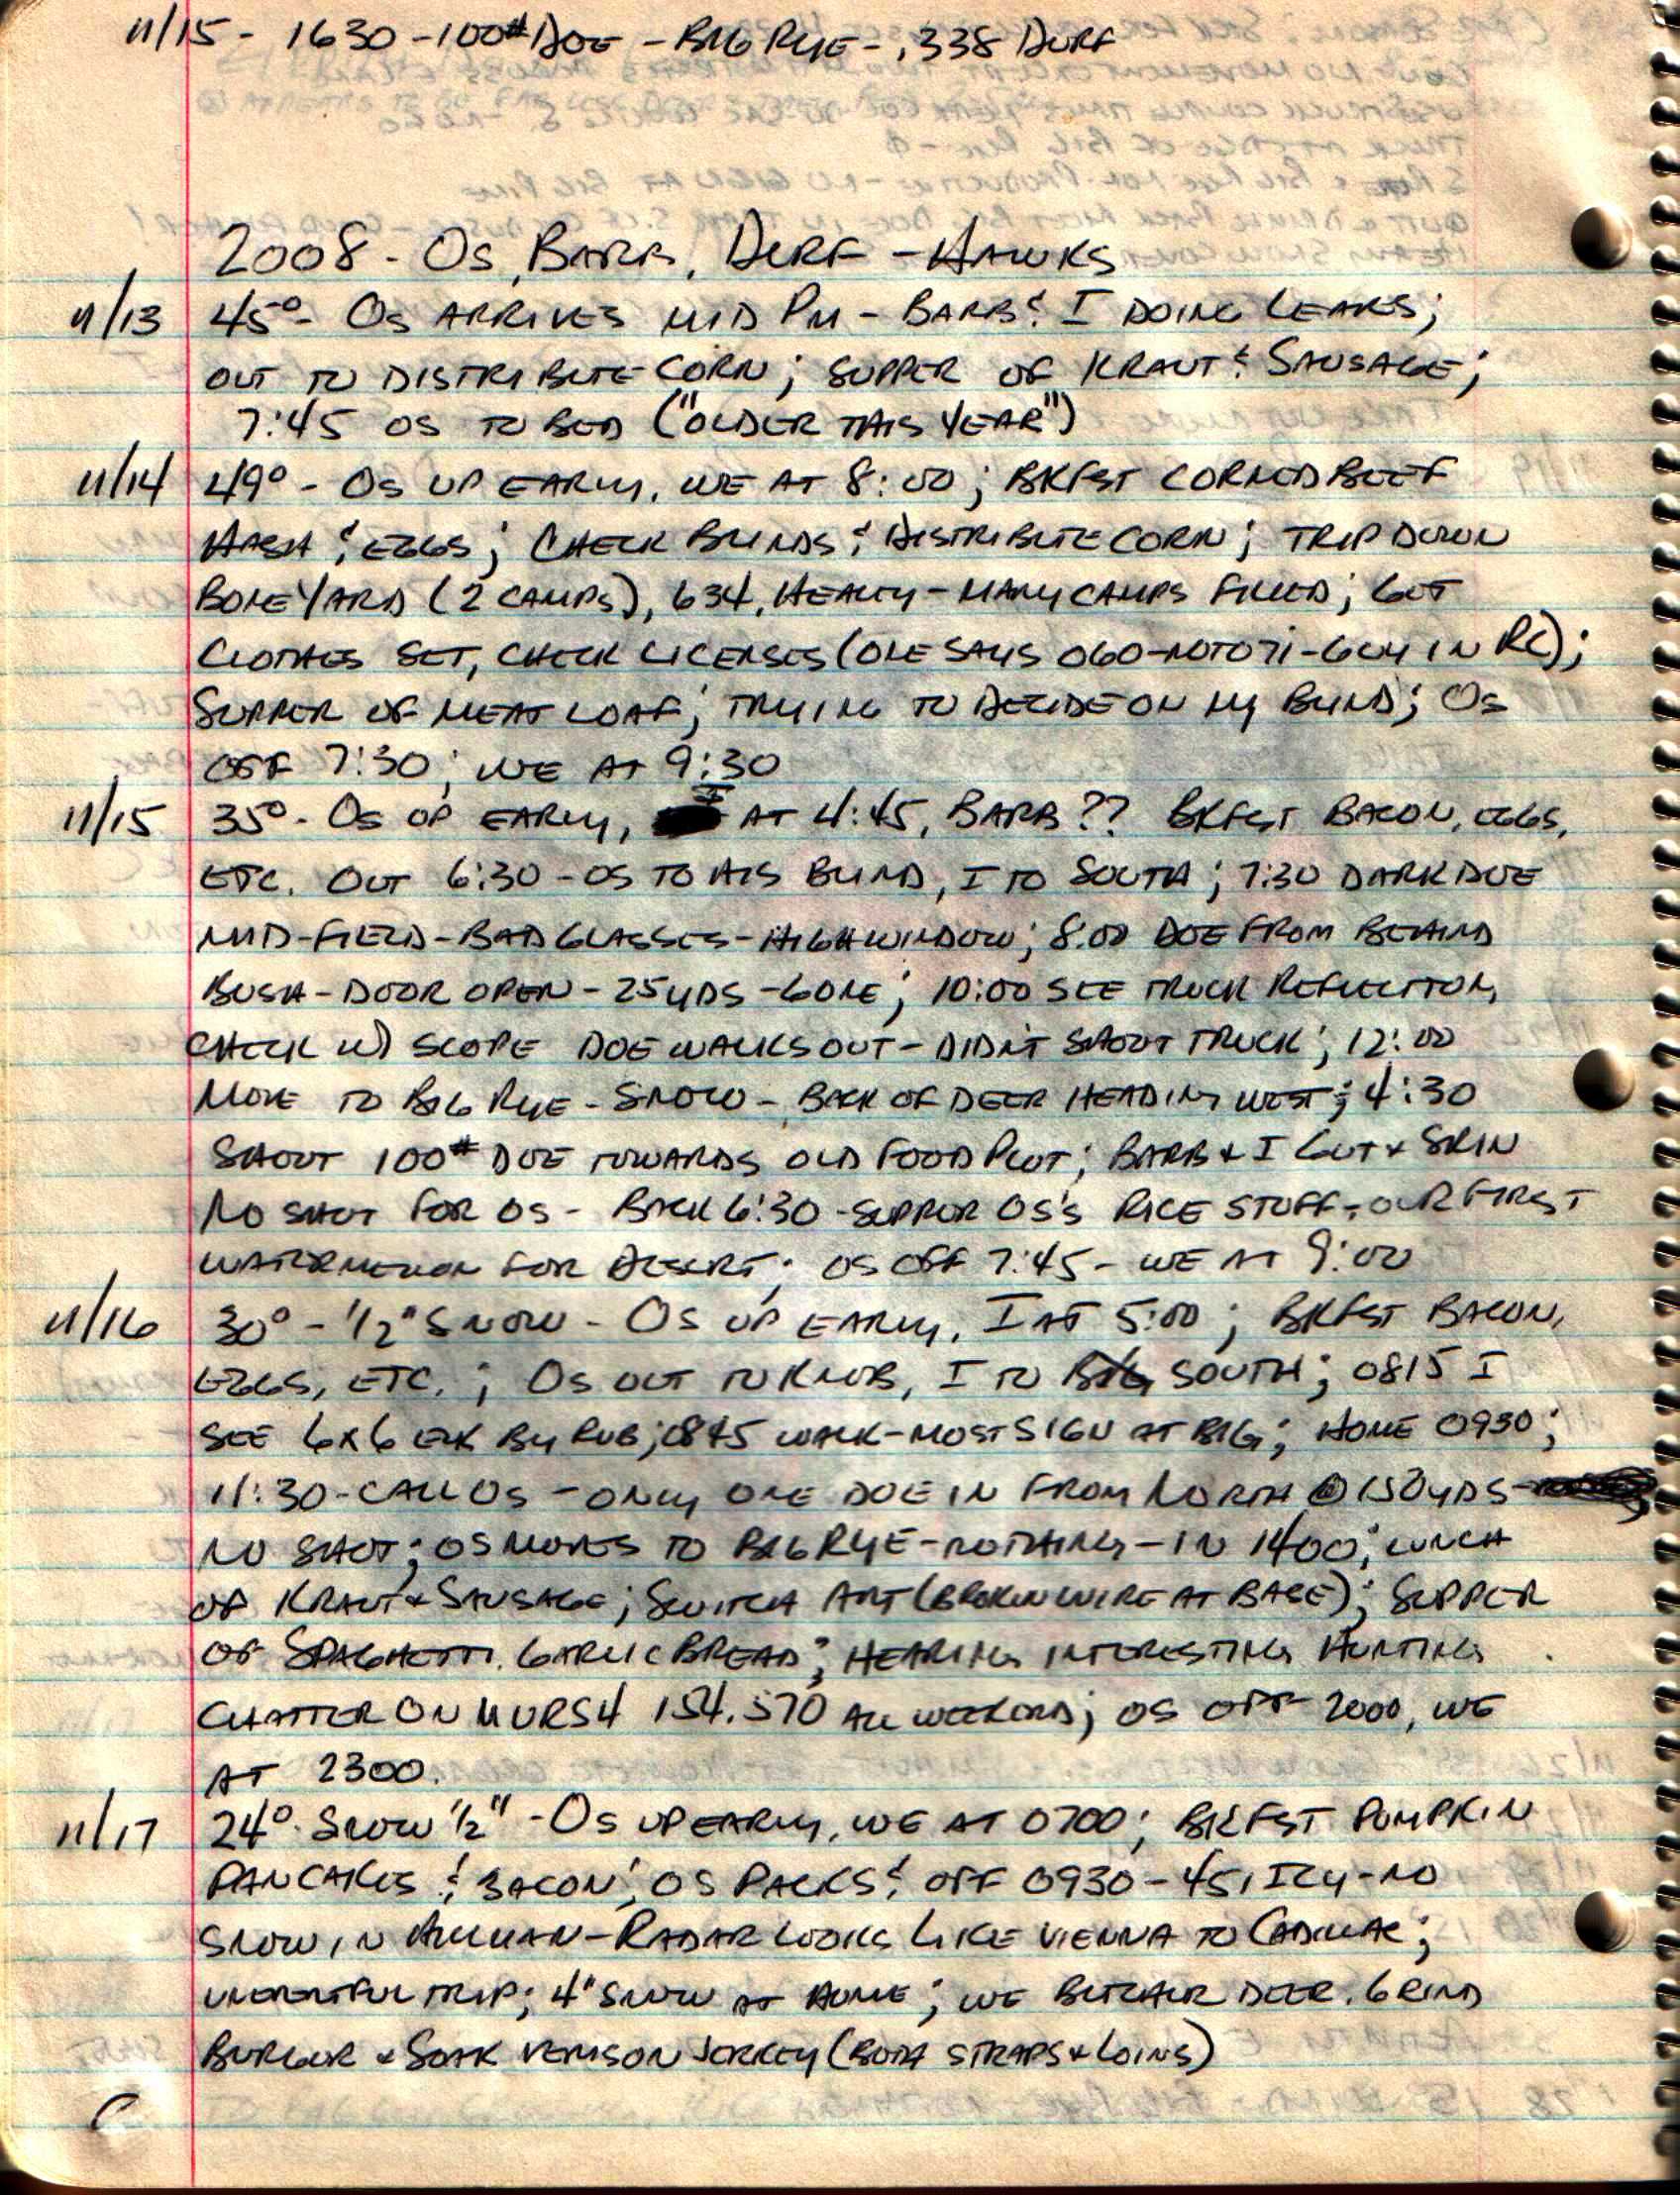 11/15 - 1630 - 100# DOE - BIG RYE - .338 DERF
2008 - OS, BARB, DERF - HAWKS
11/13 45° - OS ARRIVES MID PM - BARB & I DOING LEAVES;
OUT TO DISTRIBUTE CORN; SUPPER OF KRAUT & SAUSAGE;
7:45 OS TO BED ("OLDER THIS YEAR")
11/14 49° - OS UP EARLY, WE AT 8:00; BKFST CORNED BEEF
HASH & EGGS; CHECK BLINDS & DISTRIBUTE CORN; TRIP DOWN
BONEYARD (2 CAMPS), 634, HEALEY - MANY CAMPS FILLED; GOT
CLOTHES SET, CHECK LICENSES (ONE SAYS 060-NOT 071-GUY IN RC);
SUPPER OF MEAT LOAF; TRYING TO DECIDE ON MY BLIND; OS
OFF 7:30; WE AT 9:30
11/15 35° - OS UP EARLY, I AT 4:45, BARB?? BKFST BACON, EGGS,
ETC. OUT 6:30 - OS TO HIS BLIND, I TO SOUTH; 7:30 DARK DOE
MID-FIELD - BAD GLASSES - HIGH WINDOW; 8:00 DOE FROM BEHIND
BUSH - DOOR OPEN - 25 YDS - GONE; 10:00 SEE TRUCK REFLECTION,
CHECK W/ SCOPE DOE WALKS OUT - DIDN'T SHOOT TRUCK; 12:00
MOVE TO BIG RYE - SNOW - BACK OF DEER HEADING WEST; 4:30
SHOOT 100# DOE TOWARDS OLD FOOD PLOT; BARB & I GUT & SKIN
NO SHOT FOR OS - BACK 6:30 - SUPPER OS'S RICE STUFF, OUR FIRST
WATERMELON FOR DESERT; OS OFF 7:45 - WE AT 9:00
11/16 30° - 1/2" SNOW - OS UP EARLY, I AT 5:00; BKFST BACON,
EGGS, ETC.; OS OUT TO KNOB, I TO BIG SOUTH; 0815 I
SEE 6X6 ELK BY RUB; 0845 WALK - MOST SIGN AT BIG; HOME 0930;
11:30 - CALL OS - ONLY ONE DOE IN FROM NORTH @ 150 YDS -
NO SHOT; OS MOVES TO BIG RYE - NOTHING - IN 1400; LUNCH
OF KRAUT & SAUSAGE; SWITCH ANT (BROKEN WIRE AT BASE); SUPPER
OF SPAGHETTI, GARLIC BREAD; HEARING INTERESTING HUNTING
CHATTER ON MURS4 154.570 ALL WEEKEND; OS OFF 2000, WE
AT 2300.
11/17 24° - SNOW 1/2" - OS UP EARLY, WE AT 0700; BKFST PUMPKIN
PANCAKES & BACON; OS PACKS & OFF 0930 - 45, ICY - NO
SNOW IN - RADAR LOOKS LIKE VIENNA TO CADILLAC;
UNEVENTFUL TRIP; 4" SNOW AT HOME; WE BUTCHER DEER, GRIND
BURGER & SOAK VENISON JERKEY (BOTH STRAPS & LOINS)